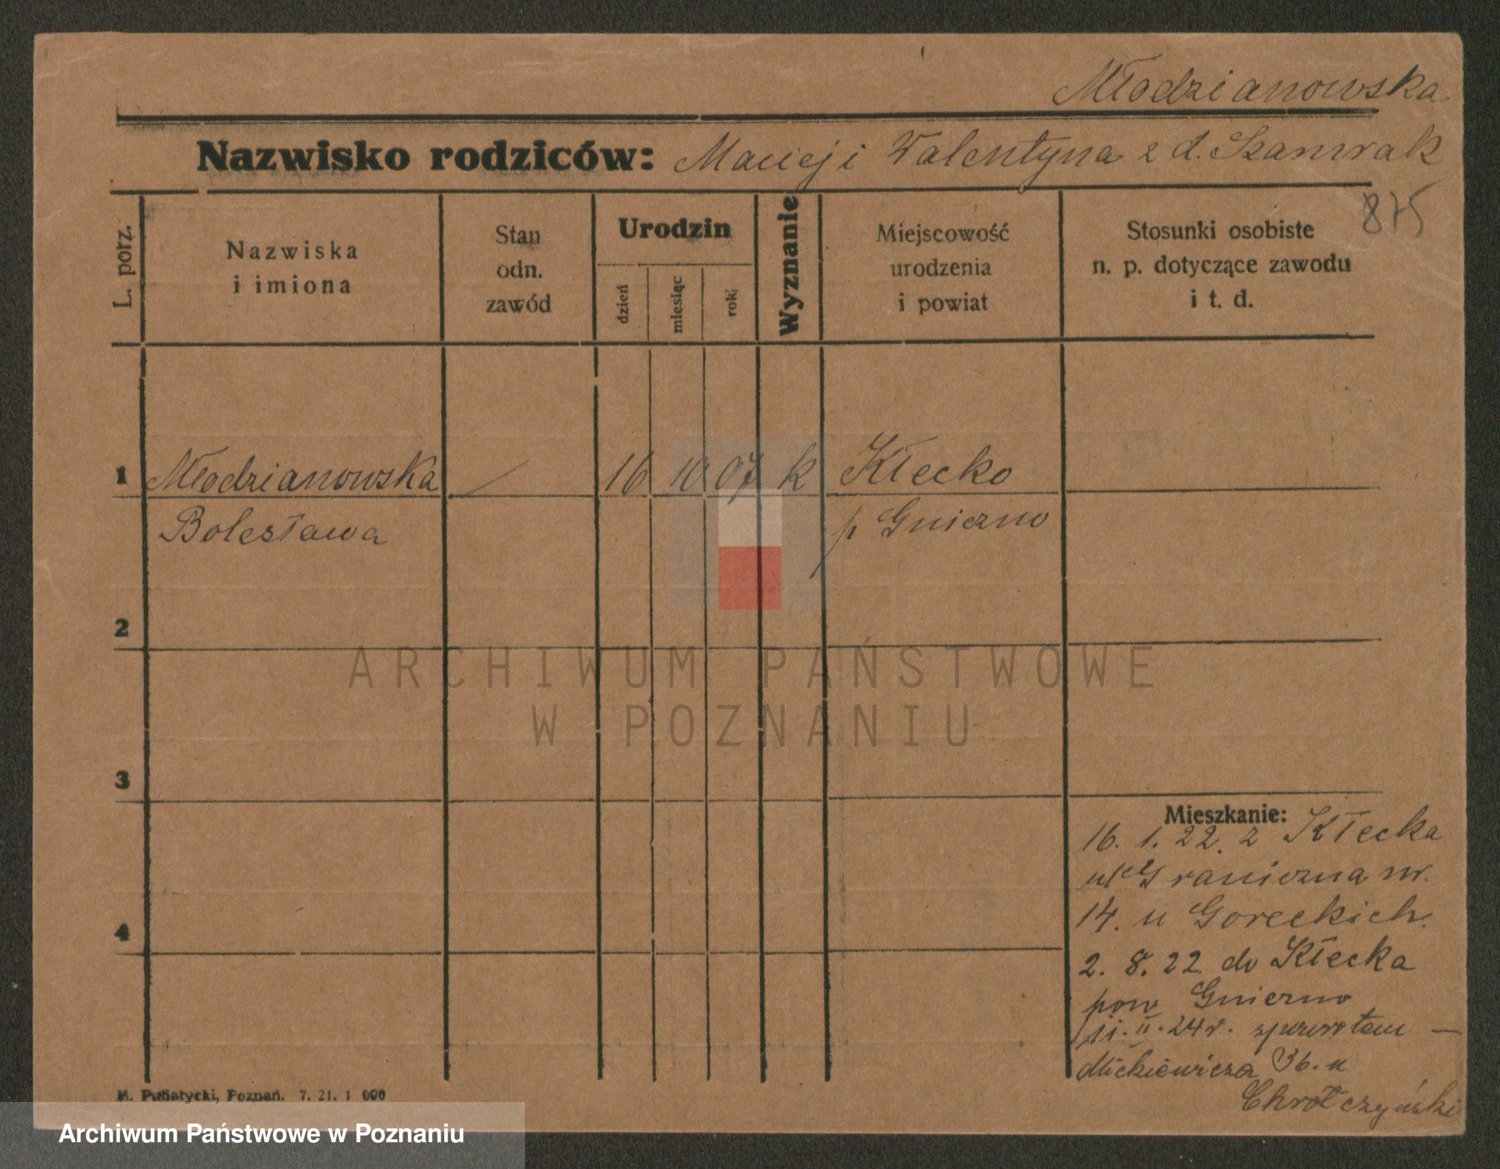 Młodzianowska
Nazwisko rodziców: Maciej i Walentyna z d. Szamrak
875
L. porz.
Nazwiska
i imiona
Stan
odn.
zawód
Urodzin
dzień
miesiąc
rok
Wyznanie
Miejscowość
urodzenia
i powiat
Stosunki osobiste
n. p. dotyczące zawodu
i t. d.
1 Młodzianowska / 16 10 07 k Kłecko
Bolesława p Gniezno
2
3
4
Mieszkanie:
16. 1. 22. z Kłecka
ul Graniczna nr.
14. u Goreckich.
2. 8. 22 do Kłecka
pow Gniezno
11. II. 24 r. zpowrotem —
Mickiewicza 36. u
Chrołczyński
M. Putiatycki, Poznań. 7. 21. 1 000
ARCHIWUM PAŃSTWOWE
W POZNANIU
Archiwum Państwowe w Poznaniu